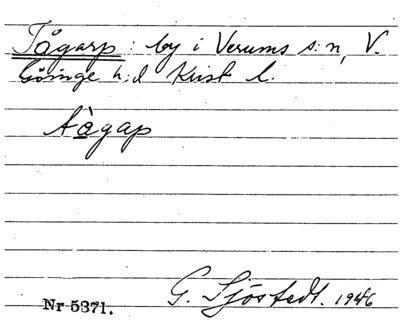 Tågarp: by i Verums s:n, V.
Göinge h:d Krist l.
tàgap
G. Sjöstedt. 1946
Nr 5371.